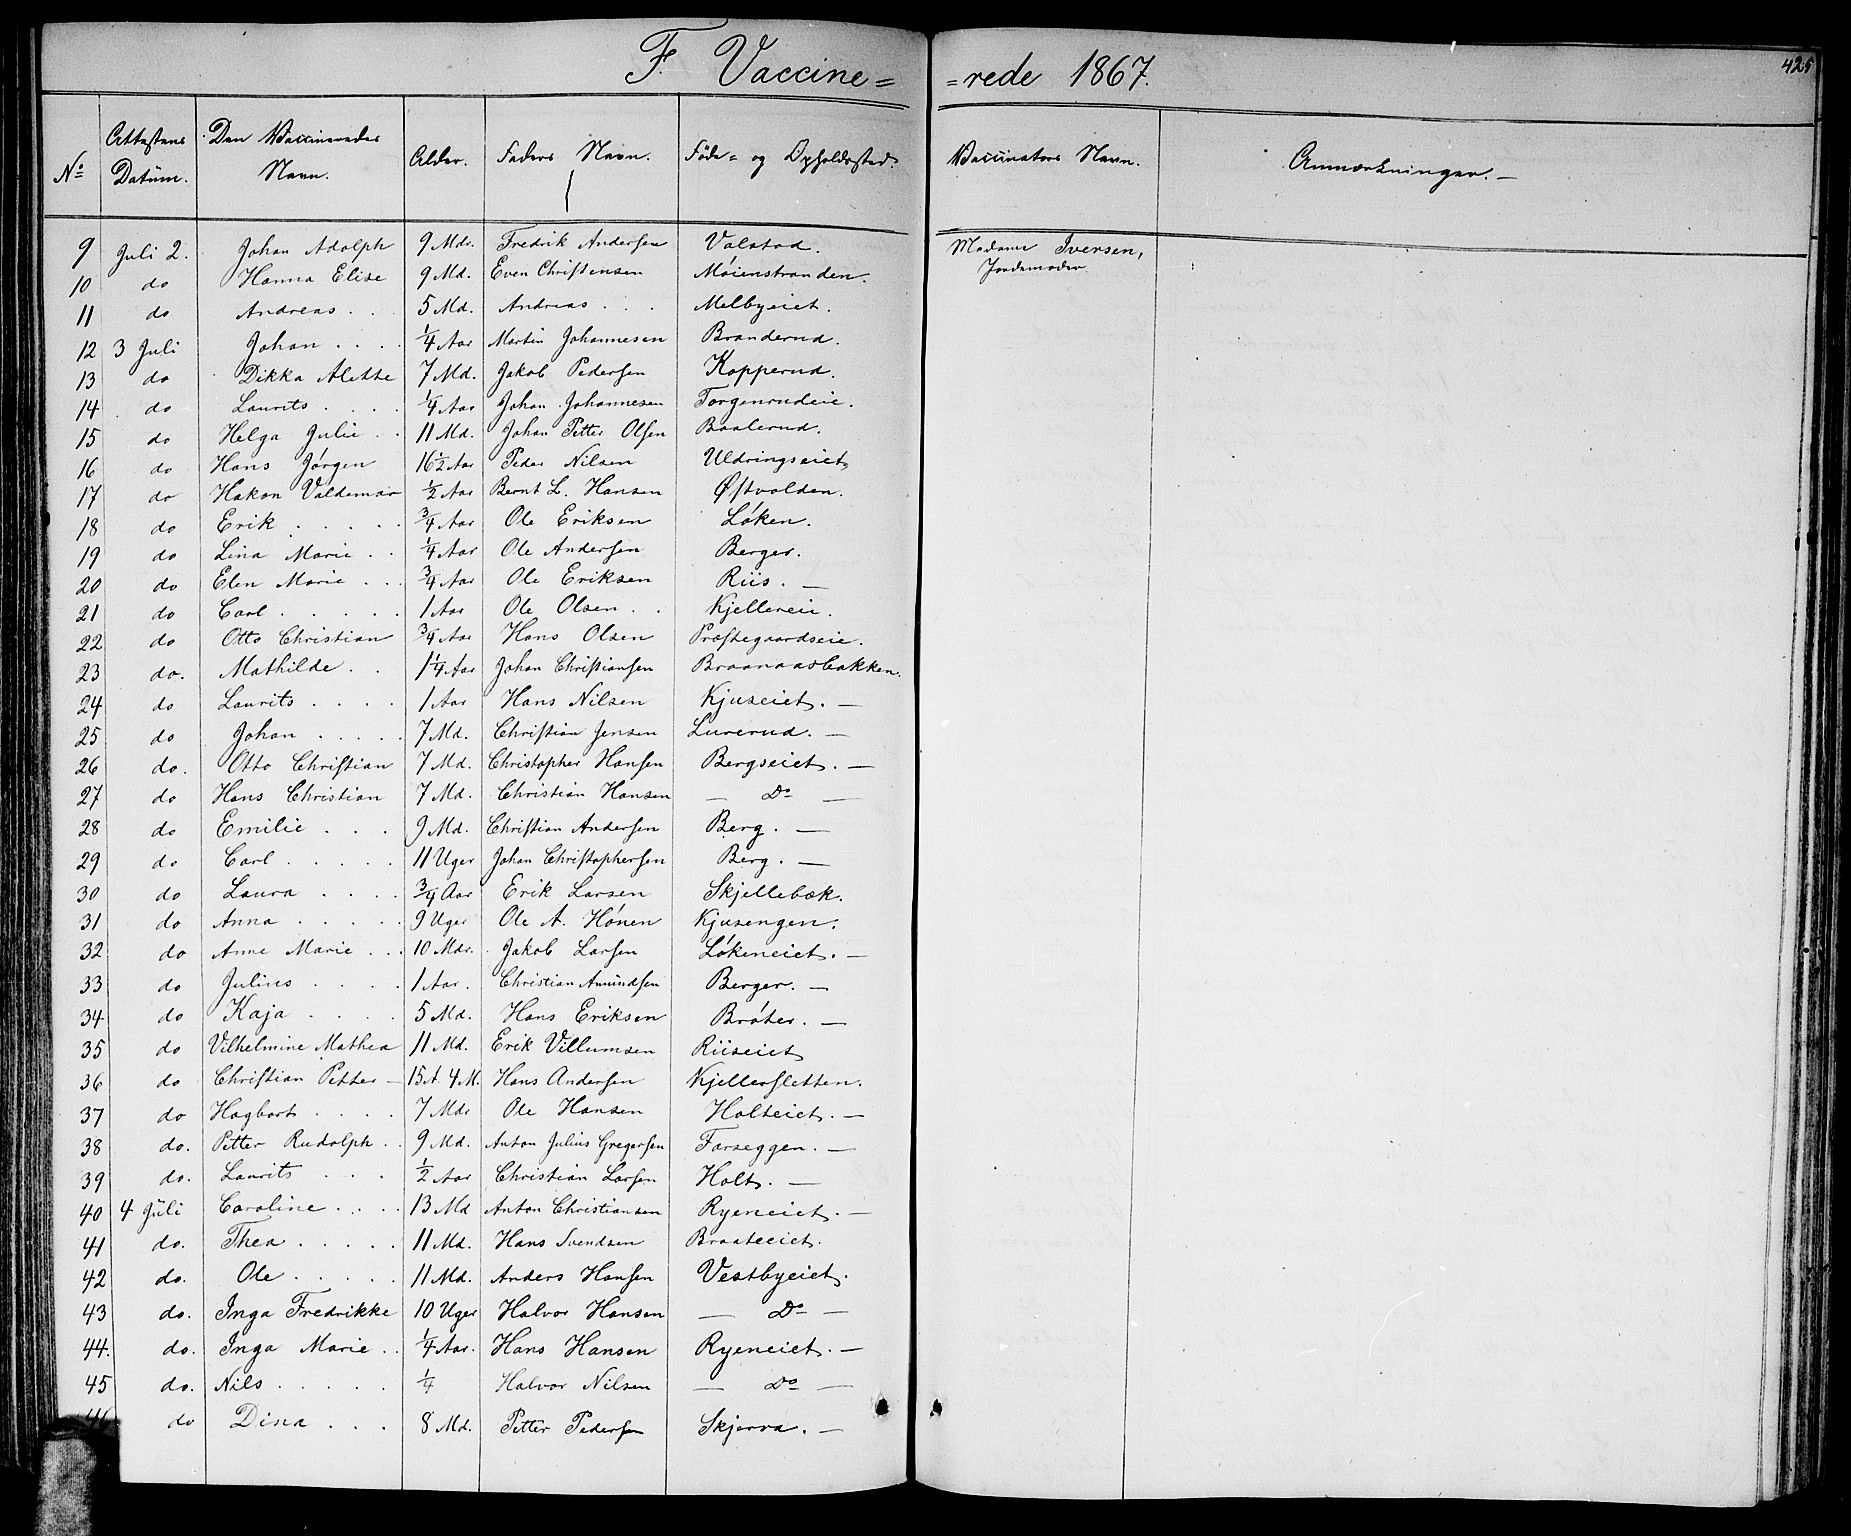 F. Vaccine= =rede 1867.
425
No Attestens Datum. Den Vaccineredes Navn. Alder. Faders Navn. Føde- og Opholdssted. Vaccinators Navn. Anmærkninger. —
9 Juli 2. Johan Adolph 9 Mdr. Fredrik Andersen Valstad. Madame Iversen,
Jordemoder
10 do Hanna Elise 9 Md. Even Christensen Møienstranden.
11 do Andreas . . 5 Md. Andreas . . . Melbyeiet.
12 3 Juli Johan . . . . 1/4 Aar Martin Johannesen Branderud.
13 do Dikka Alette 7 Md. Jakob Pedersen Kopperud.
14 do Laurits . . . . 1/4 Aar Johan Johannesen Torgenrudeie.
15 do Helga Julie . . 11 Md. Johan Petter Olsen Baalerud.
16 do Hans Jørgen 16 1/2 Aar Peder Nilsen Uldringseiet
17 do Hakon Valdemar 1/2 Aar Bernt L. Hansen Østvolden.
18 do Erik . . . . . 3/4 Aar Ole Eriksen Løken.
19 do Lina Marie . . 1/4 Aar Ole Andersen Berger.
20 do Elen Marie . . . 3/4 Aar Ole Eriksen Riis. —
21 do Carl . . . . . 1 Aar Ole Olsen . . Kjellereie.
22 do Otto Christian 3/4 Aar Hans Olsen Præstegaardseie.
23 do. Mathilde . . 1 1/4 Aar Johan Christiansen Braanaasbakken.
24 do Laurits . . . . 1 Aar Hans Nilsen Kjuseiet. —
25 do Johan . . . . . 7 Md. Christian Jensen Lurerud. —
26 do. Otto Christian 7 Md. Christopher Hansen Bergseiet. —
27 do Hans Christian 7 Md. Christian Hansen — Do —
28 do Emilie . . . 9 Md. Christian Andersen Berg. —
29 do Carl . . . . . 11 Uger Johan Christophersen Berg. —
30 do Laura . . . . 3/4 Aar Erik Larsen Skjellebæk.
31 do Anna . . . . . 9 Uger Ole A. Hønen Kjusengen.
32 do Anne Marie . . . 10 Mdr. Jakob Larsen Løkeneiet. —
33 do Julius . . . . 1 Aar. Christian Amundsen Berger. —
34 do Kaja . . . . 5 Md. Hans Eriksen Brøter. —
35 do Vilhelmine Mathea 11 Md. Erik Villumsen Riiseiet
36 do Christian Petter — 15 A 4 M. Hans Andersen Kjellersletten.
37 do Hagbart . . . . 7 Mdr Ole Hansen Holteiet. —
38 do. Petter Rudolph . . 9 Md. Anton Julius Gregersen Farseggen. —
39 do. Laurits . . . 1/2 Aar Christian Larsen Holt. —
40 4 Juli Caroline . . . . 13 Md Anton Christiansen Ryeneiet. —
41 do. Thea . . . . . 11 Md. Hans Svendsen Braateeiet.
42 do. Ole . . . . . 11 Md. Anders Hansen Vestbyeiet.
43 do. Inga Fredrikke 10 Uger Halvor Hansen — Do —
44. do. Inga Marie . . 1/4 Aar. Hans Hansen Ryeneiet. —
45 do. Nils . . . . . 1/4 Halvor Nilsen — Do —
46 do Dina . . . 8 Md. Petter Pedersen Skjerva. —